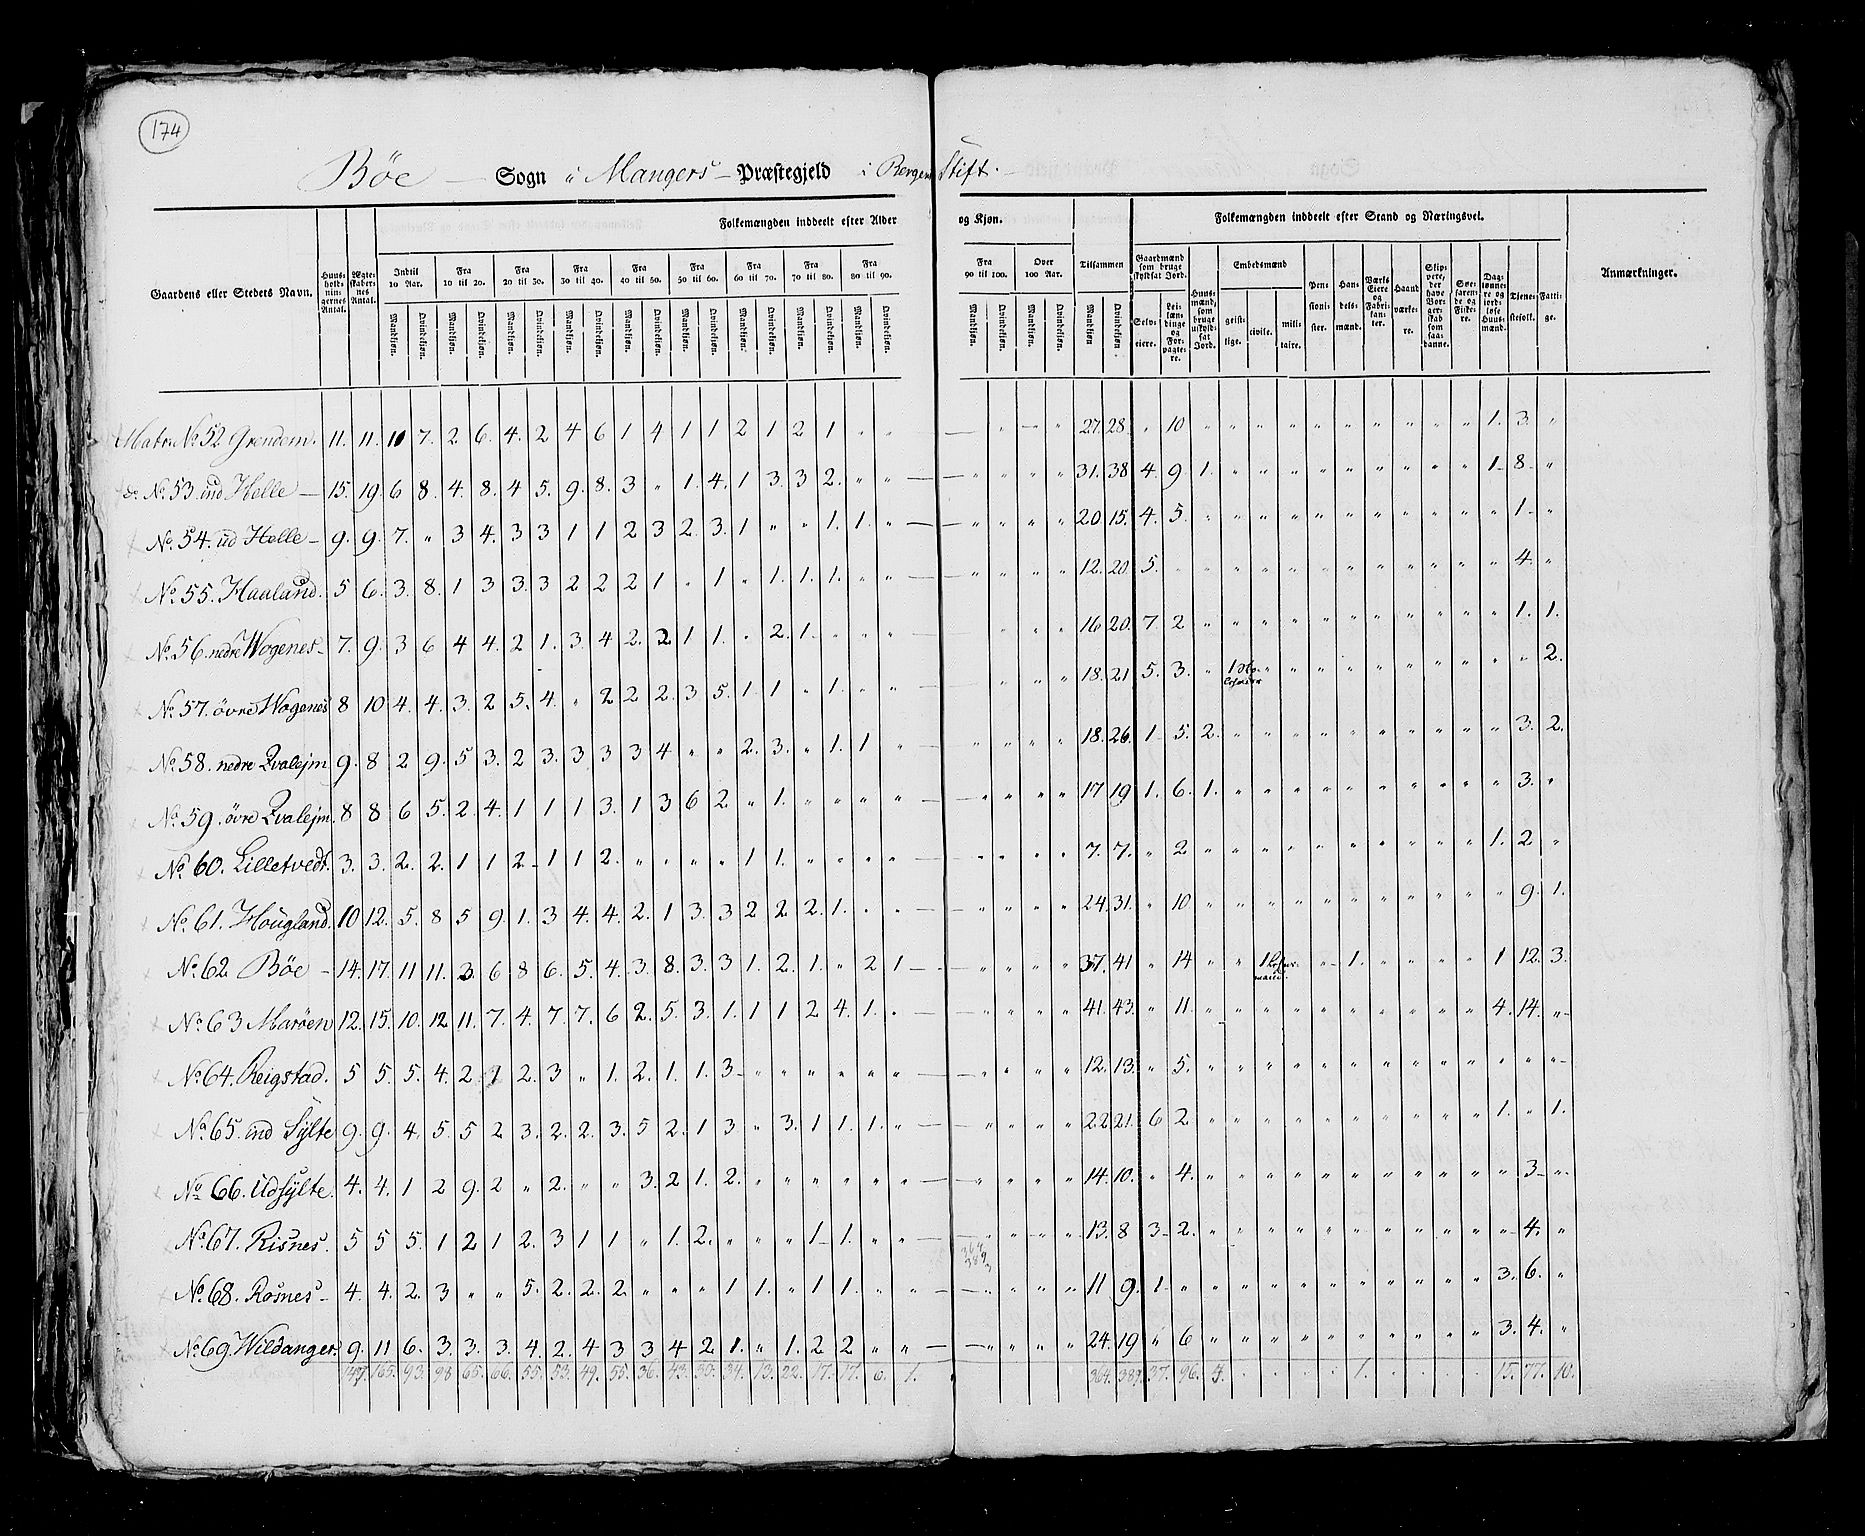 174
Böe — Sogn i Mangers Præstegjeld i Bergens Stift.
Gaardens eller Stedets Navn. Huus-holdnin-gernes Antal. Ægte-skaber-nes Antal. Folkemængden inddeelt efter Alder og Kjøn. Tilsammen Folkemængden inddeelt efter Stand og Næringsvei. Anmærkninger.
Indtil 10 Aar. Fra 10 til 20. Fra 20 til 30. Fra 30 til 40. Fra 40 til 50. Fra 50 til 60. Fra 60 til 70. Fra 70 til 80. Fra 80 til 90. Fra 90 til 100. Over 100 Aar.
Gaardmænd som bruge skyldsat Jord. Huus-mænd, som bruge uskyld-sat Jord. Embedsmænd Pen-sioni-ster. Han-dels-mænd. Værks Eiere og Fabri-kan-ter. Haand værke-re. Skip-pere, der have Bor-ger-skab som saa-danne. Søe-farende og Fiske-re. Dag-lønne-re og jord-løse Huus-mænd. Tjene-stefolk. Fatti-ge.
Mandkjøn. Qvindekjøn. Selv-eiere. Lei-læn-dinge og For-pagte-re. geist-lige. civile. mili-taire.
Matr: No 52 Grendem. 11. 11. 10 7. 2 6. 4. 2 4 6 1 4 1 1 2 1 2 1 " " 27. 28. " 10 " " " " " " " " " " 1. 3. "
do No 53. ind Helle 15. 19. 6 8. 4. 8. 4 5. 9. 8. 3 " 1. 4. 1 3. 3 2. " " 31. 38 4. 9. 1. " " " " " " " " " 1 8 "
No 54. ud Helle 9. 9. 7. " 3 4. 3 3 1 1 2 3 2. 3. 1 " " 1. 1. " 20 15. 4. 5. " " " " " " " " " " " 1 "
No 55. Haaland. 5 6. 3. 8. 1 3 3. 3 2 2 2 1 " 1 " 1. 1. 1. " " 12. 20. 5. " " " " " " " " " " " " 4. "
No 56. nedre Wogenes 7. 9. 3 6 4 4. 2 1. 3. 4 2. 2 1 1. " 2. 1. " " " 16 20. 7. 2 " " " " " " " " " " " 1. 1.
No 57. övre Wogenes 8 10 4. 4. 3. 2 5. 4. " 2 2 2. 3 5. 1. 1 " 1. " " 18. 21 5. 3. " 1 " " " " " " " " " " 2.
No 58. nedre Qvalejm 9. 8 2 9. 5 3. 2 3. 3 3 3 4 " " 2. 3. " 1. 1 " 18. 26. 1 5. 2. " " " " " " " " " " 3. 2.
No 59. övre Qvalejm. 8 8 6 5. 2. 4. 1 1 1 3. 1 3 6 2. " 1. " " " " 17 19 1. 6. 1. " " " " " " " " " " 3. "
No 60. Lilletvedt. 3. 3. 2. 2. 1 1 2 1 1 2. " " " " 1 1. " " " " 7. 7. " 2 " " " " " " " " " " 1. 2 "
No 61. Hougland. 10 12. 5. 8 5 9. 1. 3 4. 4. 2. 1 3. 3 2 2 2. 1. " " 24. 31. " 10 " " " " " " " " " " " 9. 1.
No 62 Böe 14. 17. 11 11. 3 6 8 6. 5. 4. 3. 8. 3. 3 1. 2. 1. " 2 1 37. 41 " 14 " " 1 " " 1. " " " " 1 12. 3.
No 63 Maröen 12. 15. 10. 12 11. 7. 4. 7. 7. 6 2. 5. 3. 1. 1 1 2 4. 1. " 41. 43. " 11. " " " " " " " " " " 4. 14. "
No 64. Reigstad. 5 5. 5. 4. 2. 1 2. 3 " 1. 2. 1. 1. 3 " " " " " " 12. 13. " 5. " " " " " " " " " " " " "
No 65. ind Sylte 9. 9. 4. 5. 5 2 3. 2. 2. 3. 5 2. 1 3 " 3. 1 1. 1. " 22 21. 6 2. " " " " " " " " " " 1. " 1.
No 66. Udsylte. 4. 4. 1 2 9. 2 " 2. " " 3. 2 1. 2. " " " " " " 14. 10. " 4. " " " " " " " " " " " 3 "
No 67. Risnes. 5 5 5. 1 2 1 2. 3 1 1 " 1. 2. " " " 1 1. " " 13. 8 3 2. " " " " " " " " " " " 4. "
364
389
No 68. Rosnes 4. 4. 2. 3 " " 5. 2. 2. 2 " " " 1 1. " 1 1. " " 11 9. 1 " " " " " " " " " " " 3. 6. "
No 69. Wildanger. 9. 11 6. 3. 3. 3. 4. 2. 4 3 3 4 2 1. " 1. 2 2 " " 24. 19 " 6 " " " " " " " " " " 3. 4. "
147. 165. 93. 98 65. 66. 55. 53. 49. 55. 36. 43. 30. 34. 13. 22. 17. 17. 6. 1. 364. 389. 37. 96. 4. 1. 15. 77. 10.